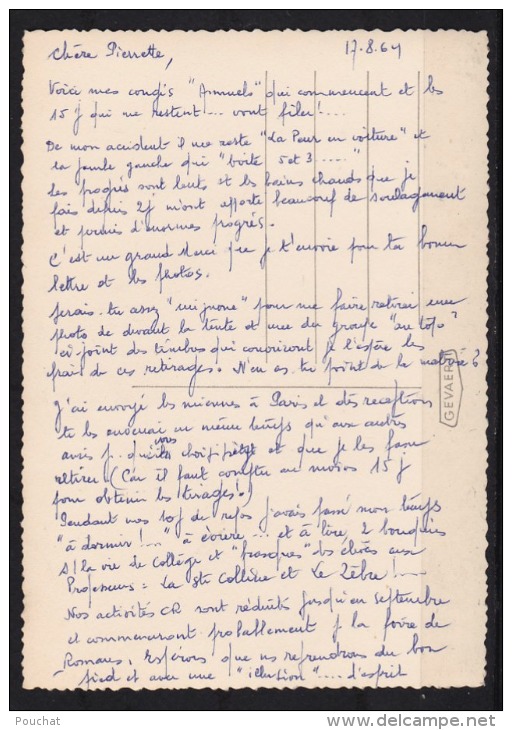 Chère Pierrette, 17.8.64
Voici mes congés "Annuels" qui commencent et les
15 j qui me restent... vont filer!...
De mon accident il me reste "La Peur en voiture" et
la jambe gauche qui "boite 5 et 3....."
Les progrès sont lents et les bains chauds que je
fais depuis 2j m'ont apporté beaucoup de soulagement
et permis d'énormes progrès.
C'est un grand Merci que je t'envoie pour ta bonne
lettre et les photos.
Serais-tu assez "mignonne" pour me faire retirer une
photo de devant la tente et une du groupe "au topo"
ci-joint des timbres qui couvriront je l'espère les
frais de ces retirages. N'en as-tu point de la ?
GEVAERT
J'ai envoyé les miennes à Paris et dès réceptions
te les enverrai en même temps qu'aux autres
avis p. qu'ils vous choisissiez et que je les fasse
retirer (Car il faut compter au moins 15 j
pour obtenir les tirages!)
Pendant mes 10j de repos j'avais passé mon temps
"à dormir!..." à écrire... et à lire, 2 bouquins
s/ la vie de Collège et "frasques" des élèves aux
Professeurs = La Ste Colline et Le Zèbre!...
Nos activités CR sont réduites jusqu'en Septembre
et commenceront probablement p la foire de
Romans, Espérons que ns reprendrons du bon
pied et avec une "illusion".... d'esprit
Pouchat
www.delcampe.net